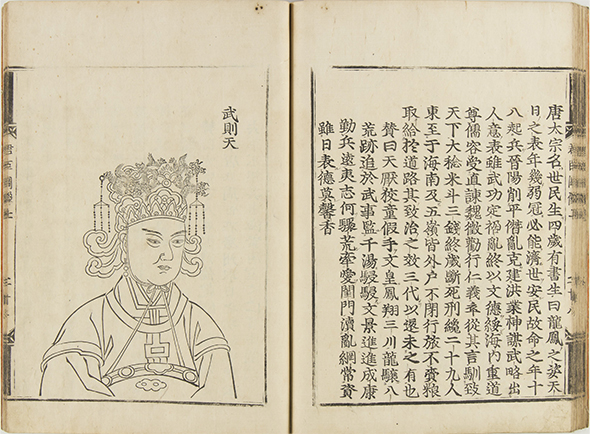 唐太宗名世民生四歲有書生曰龍鳳之姿天
日之表年幾弱冠必能濟世安民故命之年十
八起兵晉陽削平僭亂克建洪業神謀武略出
人意表雖武功定禍亂終以文德綏海內重道
尊儒容受直諫魏徵勸行仁義奉從其言馴致
天下大稔米斗三錢終歲斷死刑纔二十九人
東至于海南及五嶺皆外户不閉行旅不賫粮
取給於道路其致治之效三代以還未之有也
贊曰天厭狡童假手文皇鳳翔三川龍驤八
荒跡迨於武事監千湯駸駸文景進進成康
勤兵遠夷志何驟荒牽愛閨門瀆亂綱常資
雖日表德莫馨香
武則天